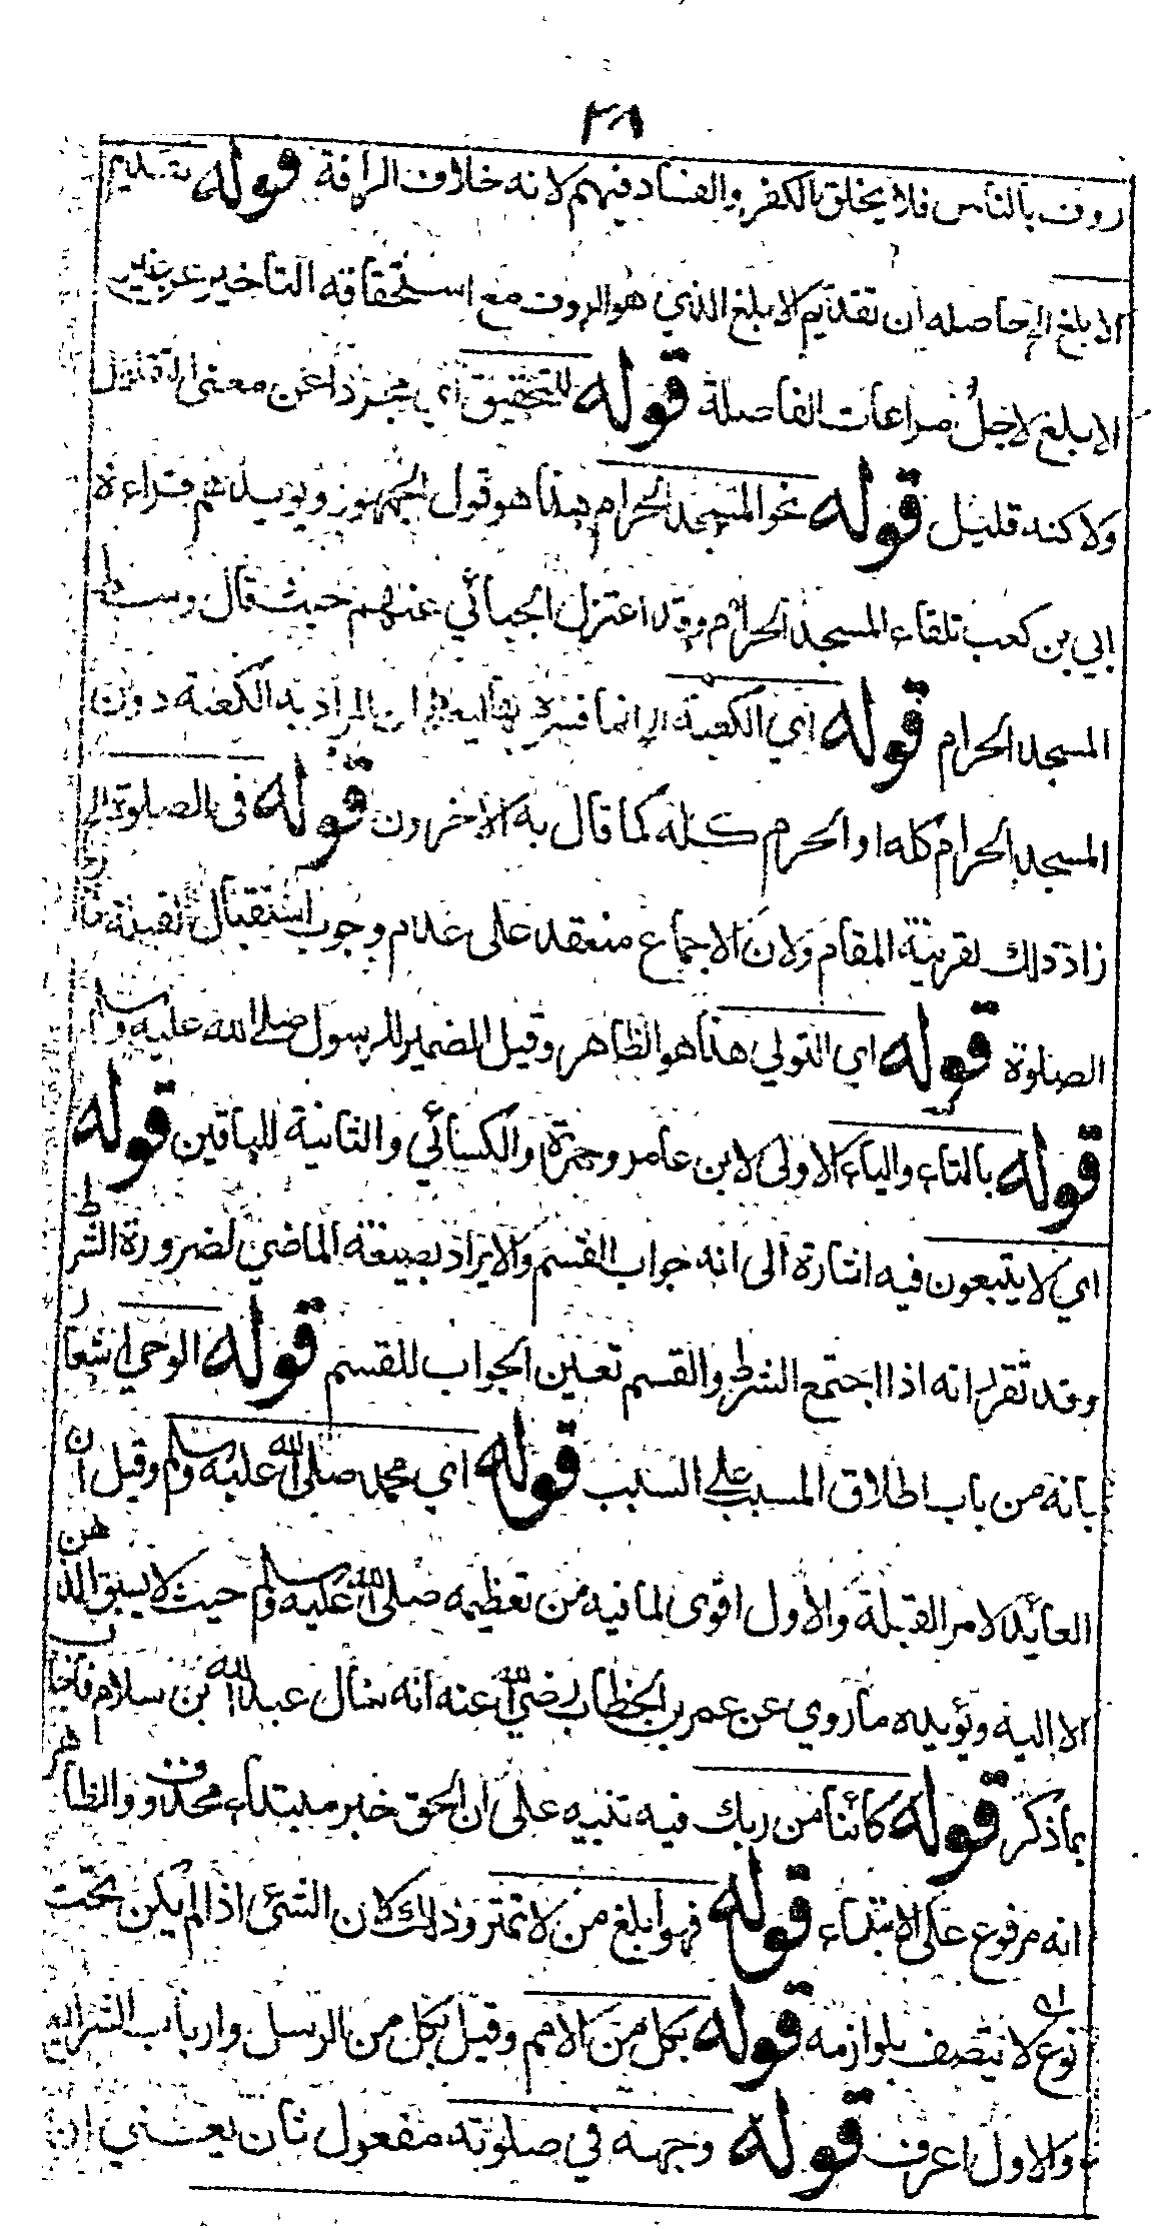 ٣٨
روف بالناس فلا يخلق بالكفر والفساد فيهم لانه خلاف الرافة قوله تقديم
الابلغ الخ حاصله ان تقديم الابلغ الذي هو الروف مع استحقاقه التاخير عن غير
الابلغ لاجل مراعات الفاصلة قوله للتحقيق اي مجردا عن معنى التقليل
ولا كند قليل قوله نحو المسجد الحرام هذا هو قول الجمهور ويويدهم قراءة
ابي بن كعب تلقاء المسجد الحرام وقد اعتزل الجبائي عنهم حيث قال وسط
المسجد الحرام قوله اي الكعبة الخ انما فسره بها ان المراد به الكعبة دون
المسجد الحرام كله او الحرم كله كما قال به الاخرون قوله في الصلوة الخ
زاد ذلك لقرينة المقام ولان الاجماع منعقد على عدم وجوب استقبال القبلة خارج
الصلوة قوله اي التولي هذا هو الظاهر وقيل الضمير للرسول صلى الله عليه وسلم
قوله بالتاء والياء الاولى لابن عامر وحمزة والكسائي والثانية للباقين قوله
اي لا يتبعون فيه اشارة الى انه جواب القسم والايراد بصيغة الماضي لضرورة الشرط
وقد تقرر انه اذا اجتمع الشرط والقسم تعين الجواب للقسم قوله الوحي اشعار
بانه من باب اطلاق المسبب على السبب قوله اي محمد صلى الله عليه وسلم وقيل ان
العائد لامر القبلة والاول اقوى لما فيه من تعظيمه صلى الله عليه وسلم حيث لا يسبق الذهن
الا اليه ويؤيده ما روي عن عمر بن الخطاب رضي الله عنه انه سأل عبد الله بن سلام فاجاب
بما ذكر قوله كائنا من ربك فيه تنبيه على ان الحق خبر مبتداء محذوف والظاهر
انه مرفوع على الابتداء قوله فهو ابلغ من لا تمتر وذلك لان الشئ اذا لم يكن تحت
نوع لا يتصف بلوازمه قوله بكل من الامم وقيل بكل من الرسل وارباب الشرائع
والاول اعرف قوله وجهه في صلوته مفعول ثان يعني ان